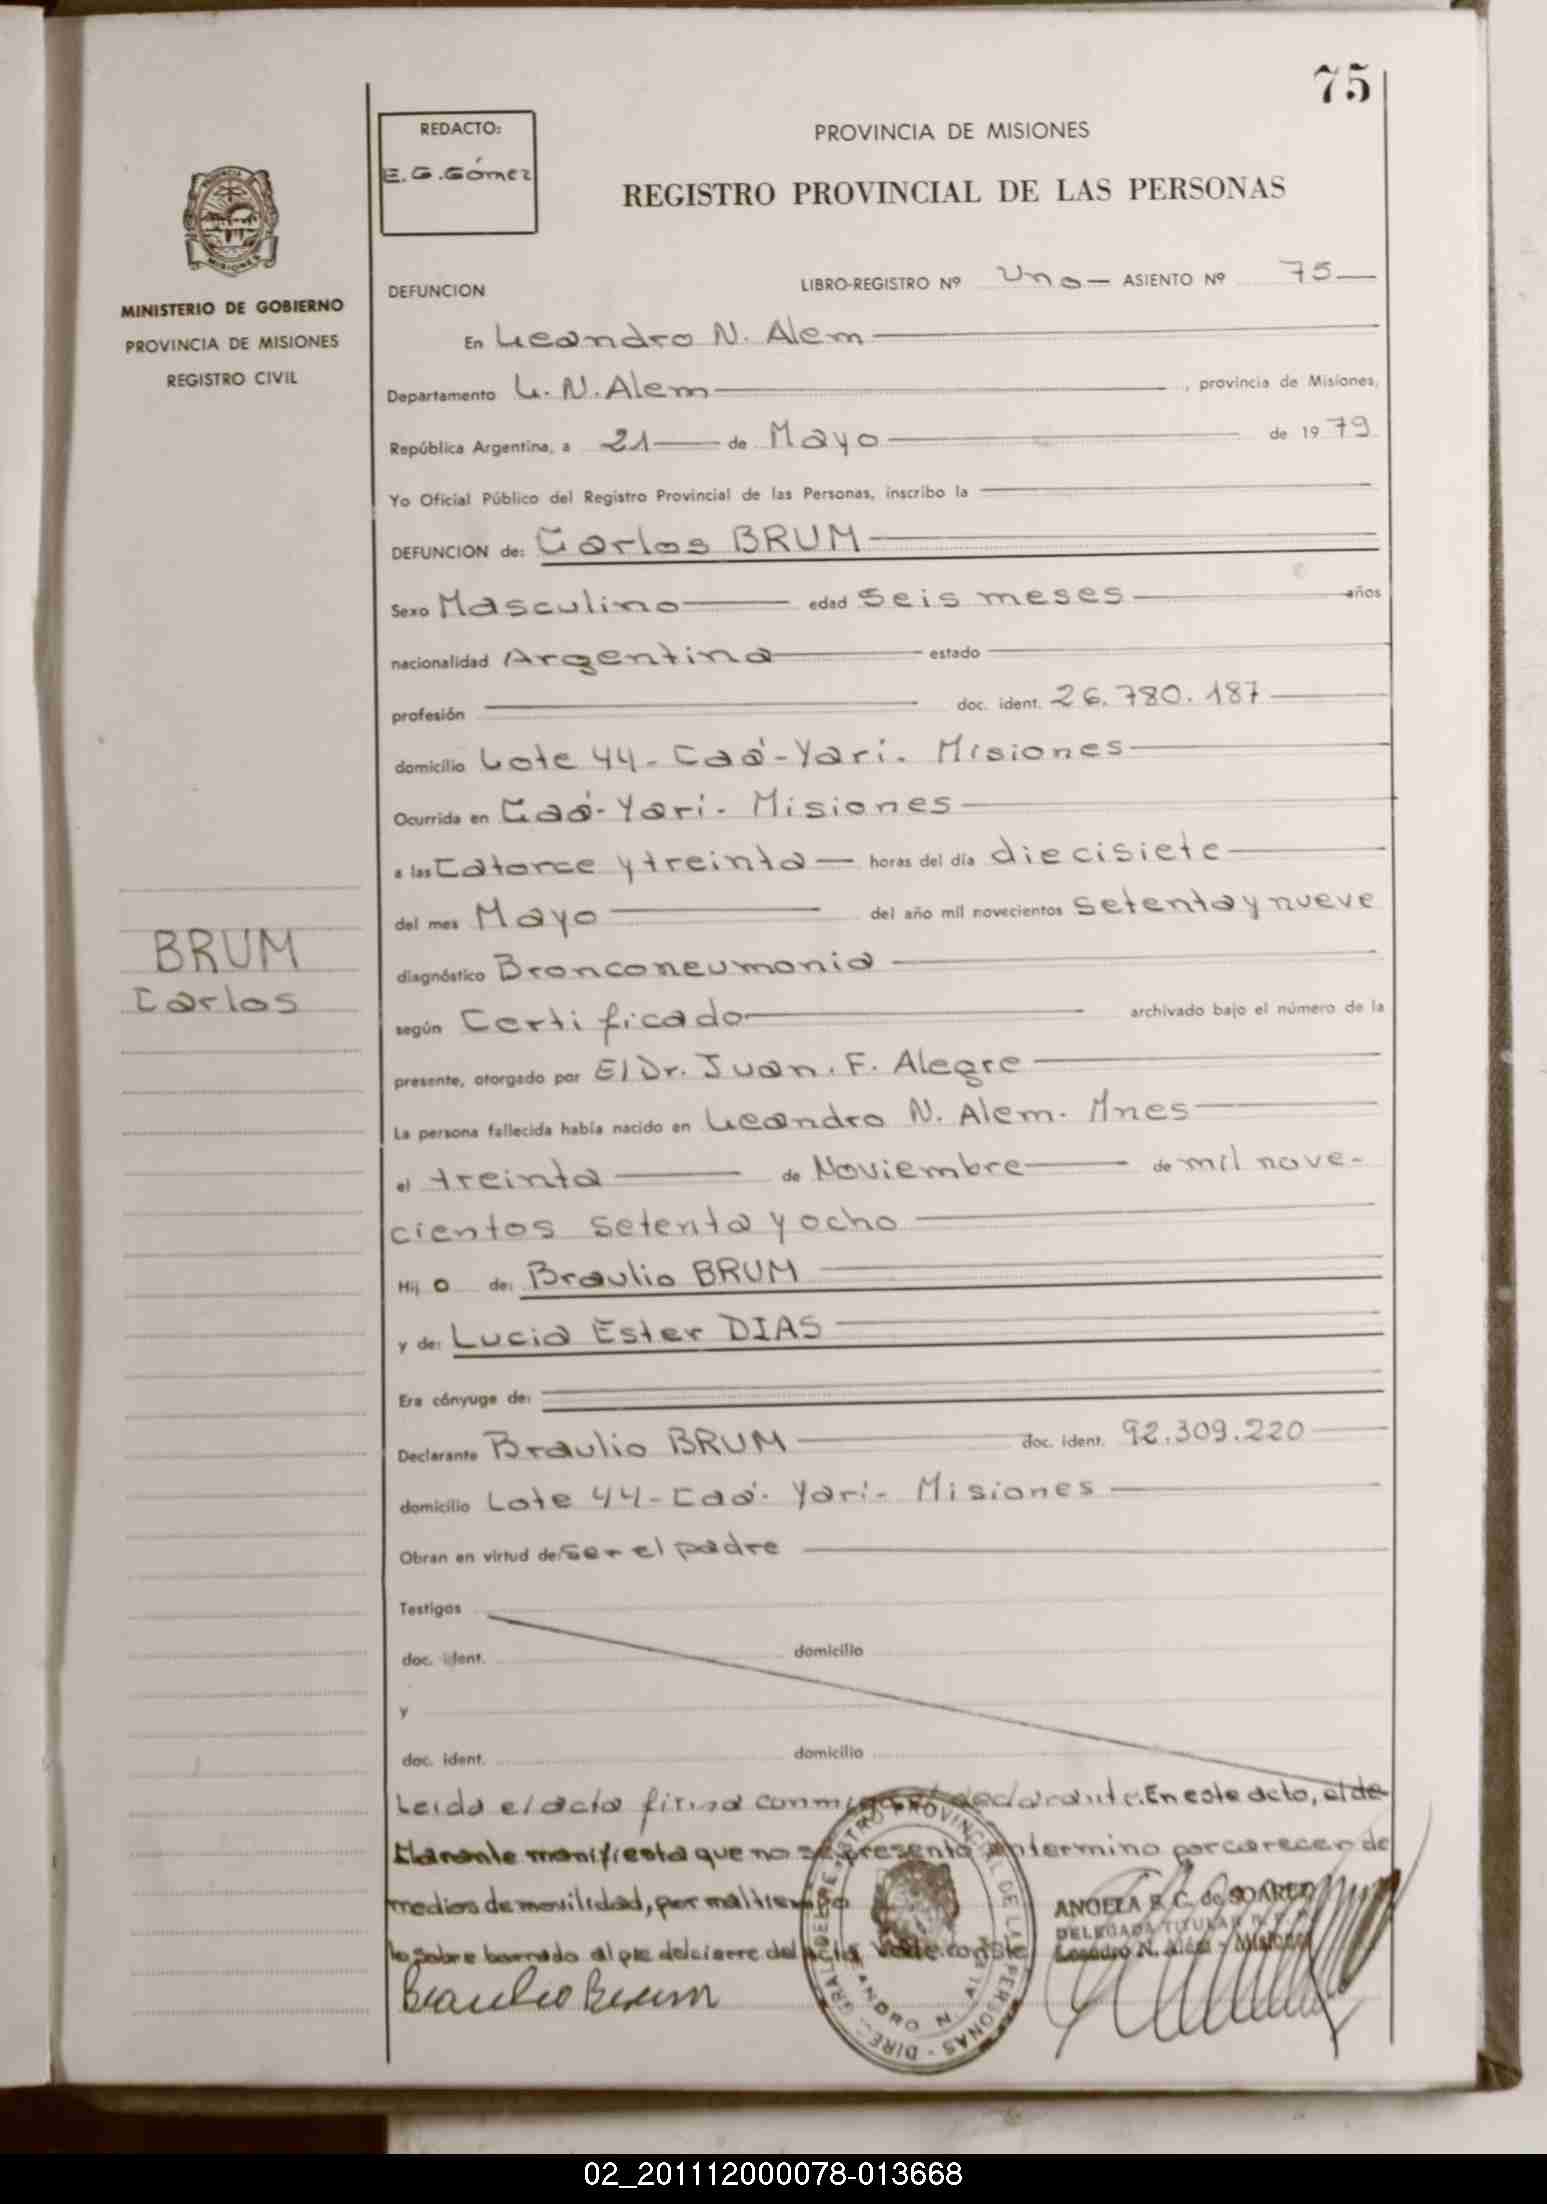 75
REDACTO:
E. G. Gómez
PROVINCIA DE MISIONES
REGISTRO PROVINCIAL DE LAS PERSONAS
MINISTERIO DE GOBIERNO
PROVINCIA DE MISIONES
REGISTRO CIVIL
DEFUNCION LIBRO-REGISTRO Nº Uno — ASIENTO Nº 75 —
En Leandro N. Alem
Departamento L. N. Alem , provincia de Misiones,
República Argentina, a 21 de Mayo de 1979
Yo Oficial Público del Registro Provincial de las Personas, inscribo la
DEFUNCION de: Carlos BRUM
Sexo Masculino edad Seis meses años
nacionalidad Argentina estado
profesión doc. ident. 26.780.187
domicilio Lote 44 - Caá-Yarí. Misiones
Ocurrida en Caá-Yarí - Misiones
a las Catorce y treinta horas del día diecisiete
del mes Mayo del año mil novecientos setenta y nueve
BRUM
Carlos
diagnóstico Bronconeumonia
según Certificado archivado bajo el número de la
presente, otorgado por El Dr. Juan. F. Alegre
La persona fallecida había nacido en Leandro N. Alem. Mnes
el treinta de Noviembre de mil nove-
cientos setenta y ocho
Hij o de: Braulio BRUM
y de: Lucia Ester DIAS
Era cónyuge de:
Declarante Braulio BRUM doc. ident. 92.309.220
domicilio Lote 44 - Caá-Yarí - Misiones
Obran en virtud de: Ser el padre
Testigos
doc. ident. domicilio
y
doc. ident. domicilio
Leida el acta firma conmigo el declarante. En este acto, el de-
clarante manifiesta que no se presentó en termino por carecer de
medios de movilidad, por mal tiempo
lo sobre borrado al pie del cierre del acta Vale. conste
Braulio Brum
ANGELA E. C. de SOAREZ
DELEGADA TITULAR R. P. P.
Leandro N. Alem - Misiones
02_201112000078-013668